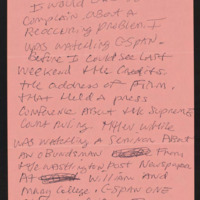 I would
complain about a
Reoccuring problem. I
was watching CSPAN.
Before I could see last
weekend the credits.
the address of firm.
that held a press
conference about the supreme
court ruling. Myth while
was watching a seminar about
an Ombudsman from
the Washington Post newspaper
at William and
Mary College. CSPAN one